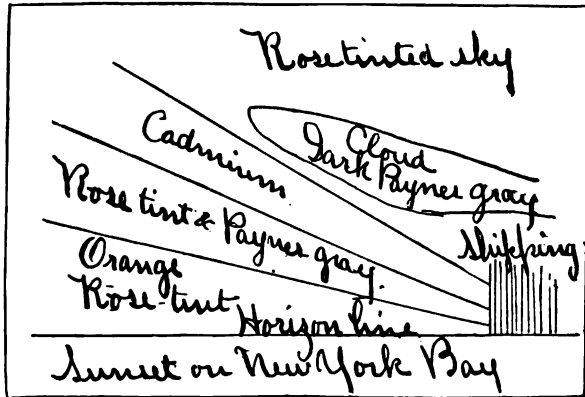 Rose tinted sky
Cloud
Dark Paynes gray
Cadmium
Rose tint & Paynes gray.
shipping
Orange
Rose-tint
Horizon line
Sunset on New York Bay